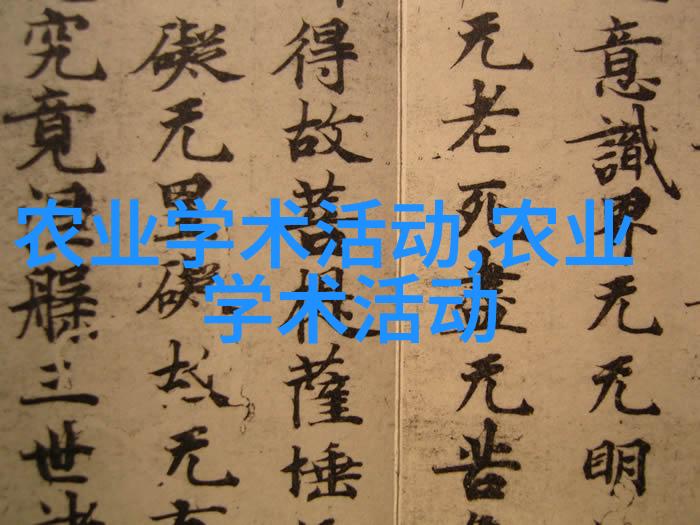 农业学术活动,农业
学术活动
意識界无无明
无老死盡无苦
得故菩提薩埵
礙无罣礙故无有
究竟涅槃三世諸